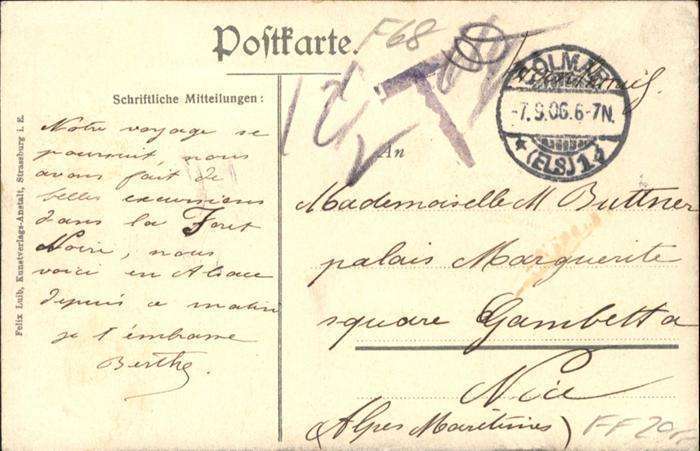 Postkarte.
F68
COLMAR
-7.9.06.6-7N.
(ELS) 1
T
Schriftliche Mitteilungen:
Notre voyage se
poursuit, nous
avons fait de
belles excursions
dans la Foret
Noire, nous
voici en Alsace
depuis ce matin
je t'embrasse
Berthe
An
Mademoiselle M Buttner
palais Marguerite
square Gambetta
Nice
(Alpes Maritimes)
FF20
Felix Luib, Kunstverlags-Anstalt, Strassburg i. E.